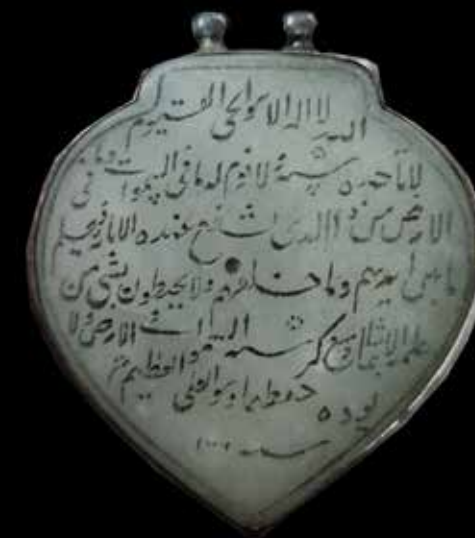 الله لا اله الا هو الحی القیوم
لا تاخذه سنة لا نوم له ما فی السموات وما فی
الارض من ذا الذی یشفع عنده الا باذنه یعلم
ما بین ایدیهم وما خلفهم ولا یحیطون بشی من
علمه الا بما شاء وسع کرسیه السموات و الارض ولا
یوده حفظهما وهو العلی العظیم
سنه